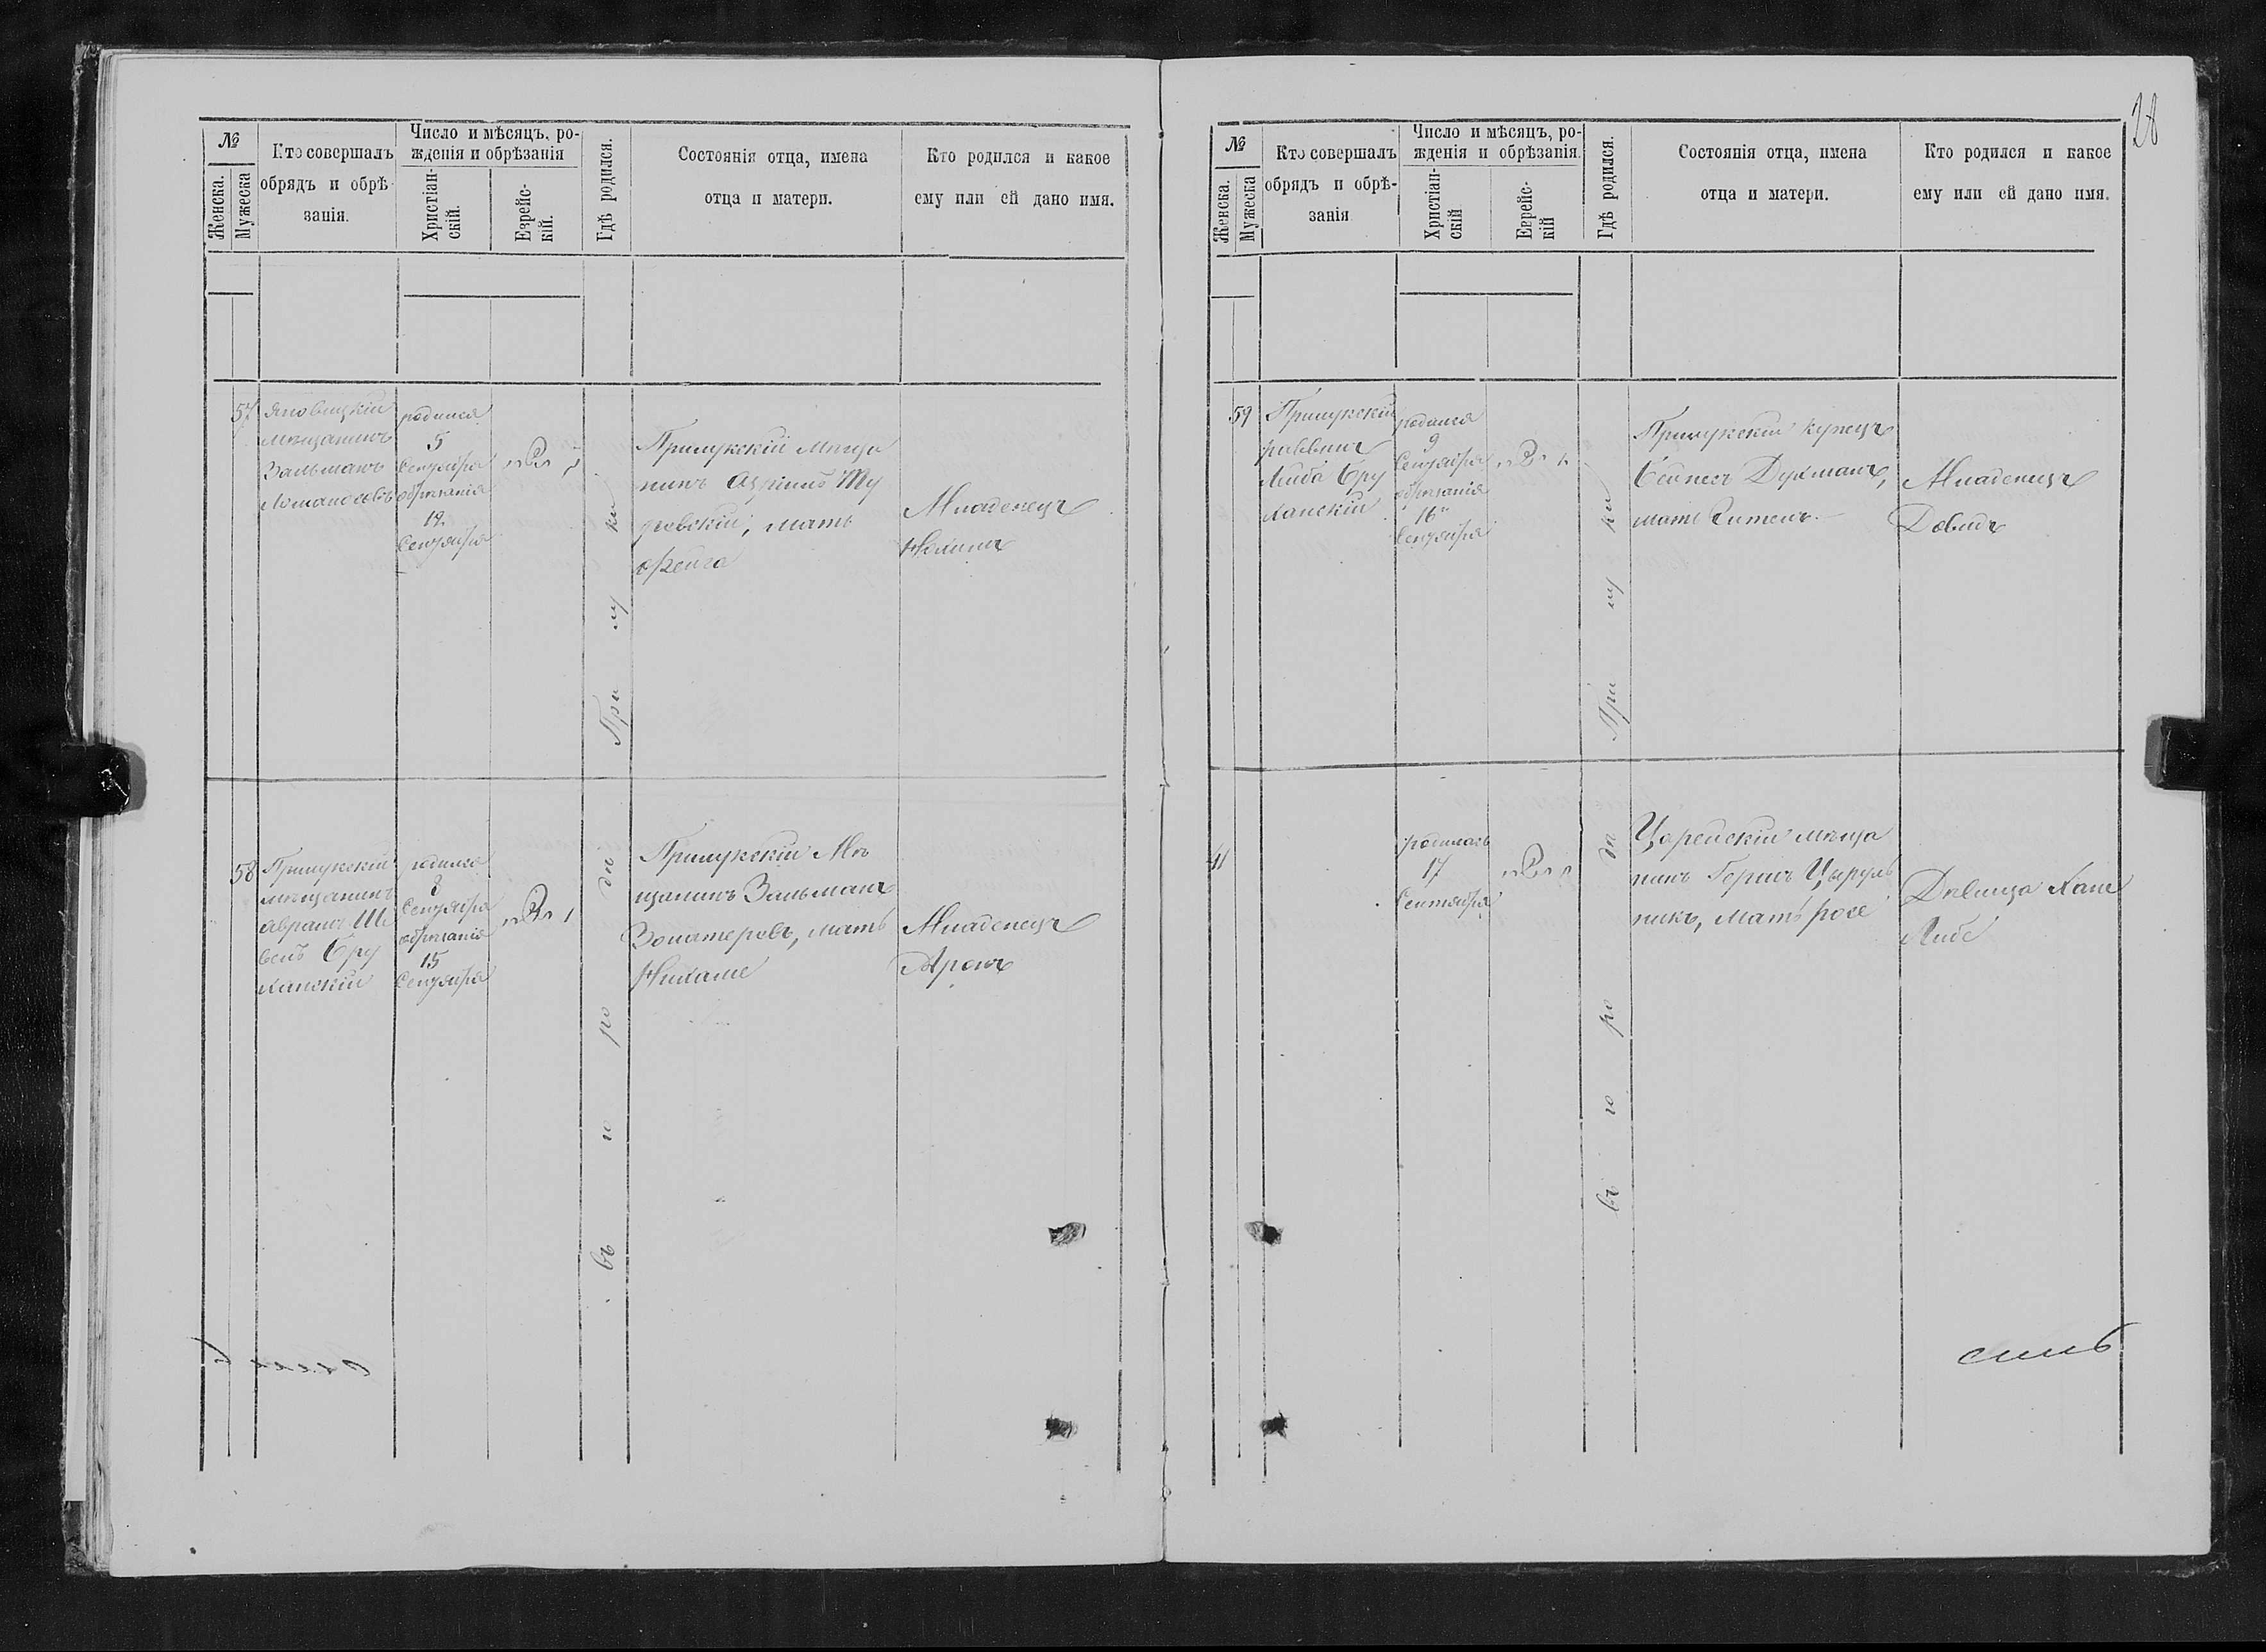 №
Женска.
Мужеска
Кто совершалъ
обрядъ и обрѣ-
занія.
Число и мѣсяцъ, ро-
жденія и обрѣзанія
Христіан-
скій.
Еврейс-
кій.
Гдѣ родился.
Состоянія отца, имена
отца и матери.
Кто родился и какое
ему или ей дано имя.
57
мѣщанинъ
Зальманъ
родился
5
Сентября
обрѣзанія
12.
Сентября
Прилукскій мѣща
нинъ Азріилъ Ту
ровскій, мать
Фейга
Младенецъ
58
Прилукскій
мѣщанинъ
Аврамъ Ше
вель Бру
ханскій
родился
8
Сентября
обрѣзанія
15
Сентября
въ го ро дѣ При лу ки
Прилукскій Мѣ
щанинъ Зальманъ
Золотеровъ, мать
Нихаме
Младенецъ
Аронъ
28
№
Женска.
Мужеска
Кто совершалъ
обрядъ и обрѣ-
занія
Число и мѣсяцъ, ро-
жденія и обрѣзанія.
Христіан-
скій
Еврейс-
кій
Гдѣ родился.
Состоянія отца, имена
отца и матери.
Кто родился и какое
ему или ей дано имя.
59
Прилукскій
раввинъ
Либа Бру
ханскій
родился
9
Сентября
обрѣзанія
16
Сентября
Прилукскій купецъ
Бейнесъ Духманъ,
мать
Младенецъ
Давидъ
41
родилась
17
Сентября
въ го ро дѣ При лу ки
мѣща
нинъ Гершъ Цыруль
никъ, мать Росе
Дѣвица Хане
Либе